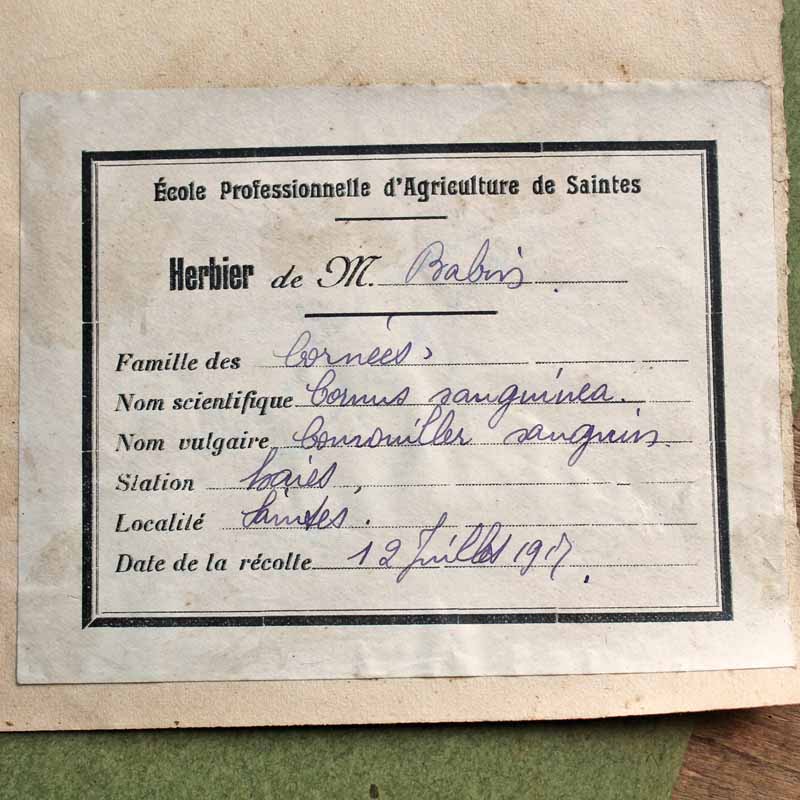 École Professionnelle d'Agriculture de Saintes
Herbier de M. Babin
Famille des Cornées
Nom scientifique Cornus sanguinea.
Nom vulgaire Cornouiller sanguin.
Station haies,
Localité Saintes.
Date de la récolte 12 Juillet 1917.